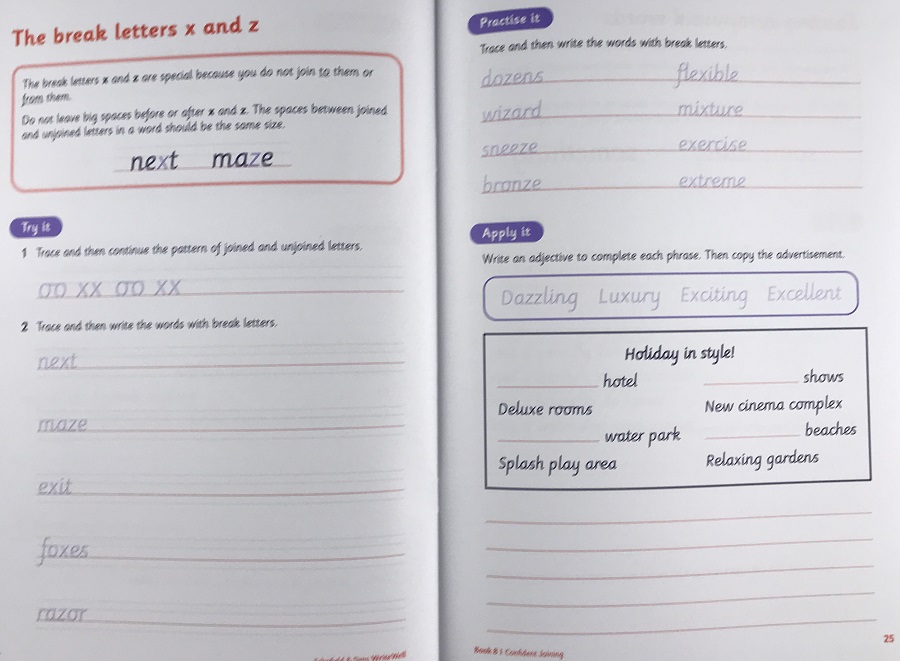 The break letters x and z
The break letters x and z are special because you do not join to them or
from them.
Do not leave big spaces before or after x and z. The spaces between joined
and unjoined letters in a word should be the same size.
next maze
Try it
1 Trace and then continue the pattern of joined and unjoined letters.
oo xx oo xx
2 Trace and then write the words with break letters.
next
maze
exit
foxes
razor
Schofield & Sims WriteWell
Practise it
Trace and then write the words with break letters.
dozens flexible
wizard mixture
sneeze exercise
bronze extreme
Apply it
Write an adjective to complete each phrase. Then copy the advertisement.
Dazzling Luxury Exciting Excellent
Holiday in style!
hotel shows
Deluxe rooms New cinema complex
water park beaches
Splash play area Relaxing gardens
Book 8 | Confident Joining
25